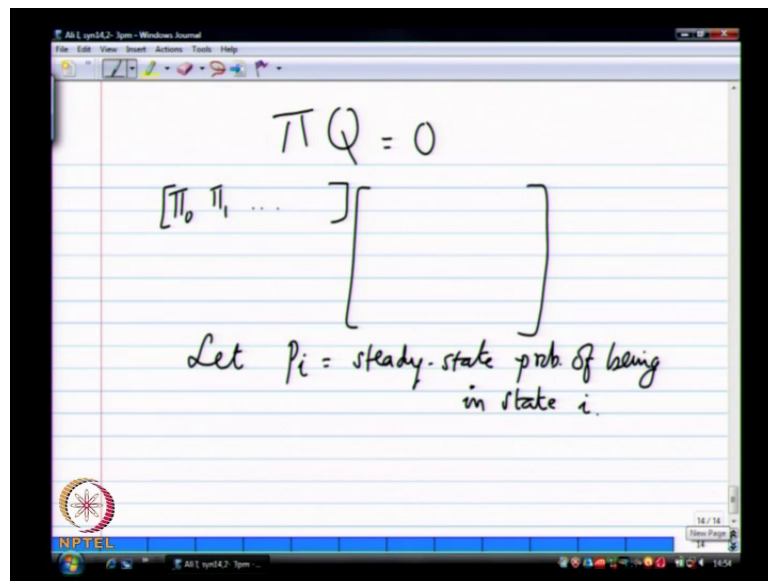 Ali I, syn14,2- 3pm - Windows Journal
File Edit View Insert Actions Tools Help
π Q = 0
[π₀ π₁ ... ] [ ]
Let Pi = steady-state prob. of being
in state i.
14 / 14
New Page
14
NPTEL
Ali I, syn14,2- 3pm - ...
14:54